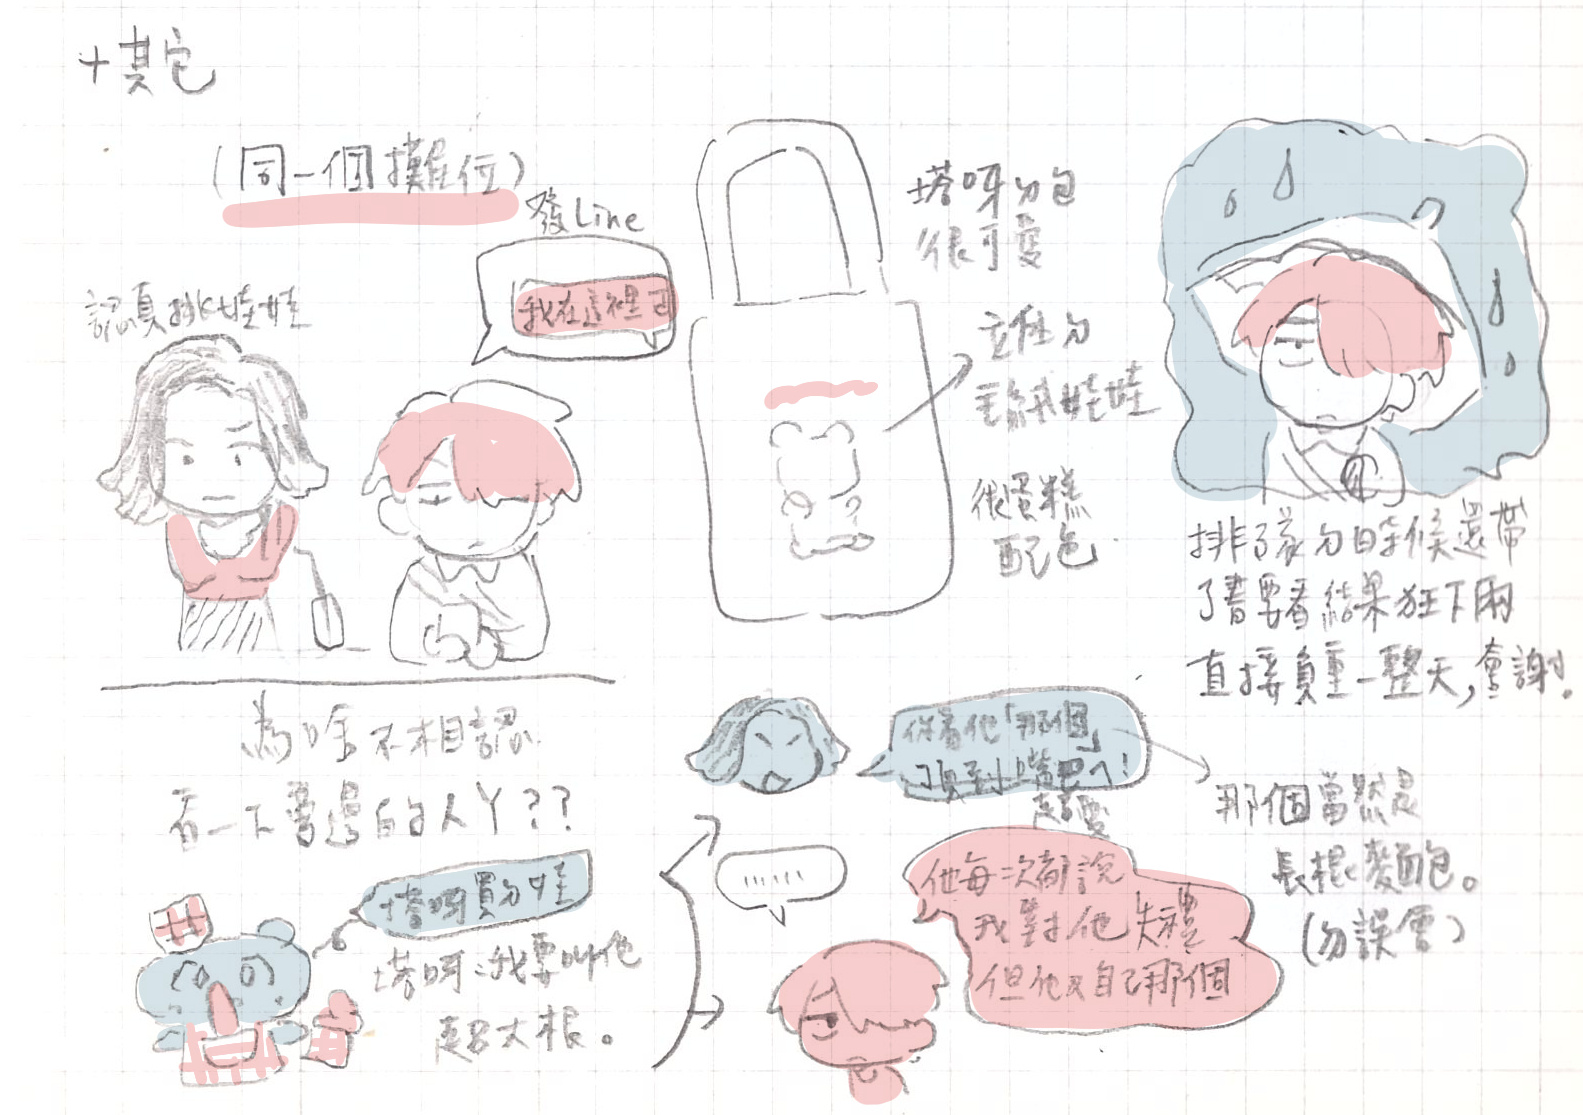 +其它
(同一個攤位)
發Line
我在這裡
認真挑娃娃
為啥不相認
看一下旁邊的人丫??
塔呀的包
很可愛
主任的
毛絨娃娃
很蛋糕
配色
排隊的時候還帶
了書要看結果狂下雨
直接負重一整天,會謝。
塔呀買的娃
塔呀:我要叫他
超大根。
你看他「那個」
頂到嘴巴ㄟ!
超可愛
那個當然是
長棍麵包。
(勿誤會)
......
他每次都說
我對他失禮
但他又自己那個